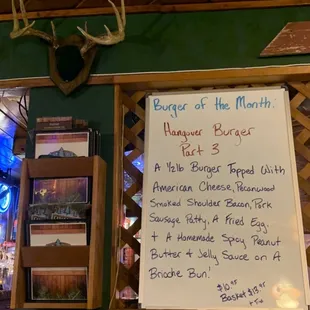 Burger of the Month:
Hangover Burger
Part 3
A 1/2lb Burger Topped With
American Cheese, Pecanwood
Smoked Shoulder Bacon, Pork
Sausage Patty, A Fried Egg,
+ A Homemade Spicy Peanut
Butter + Jelly Sauce on A
Brioche Bun!
Basket
+ Tax